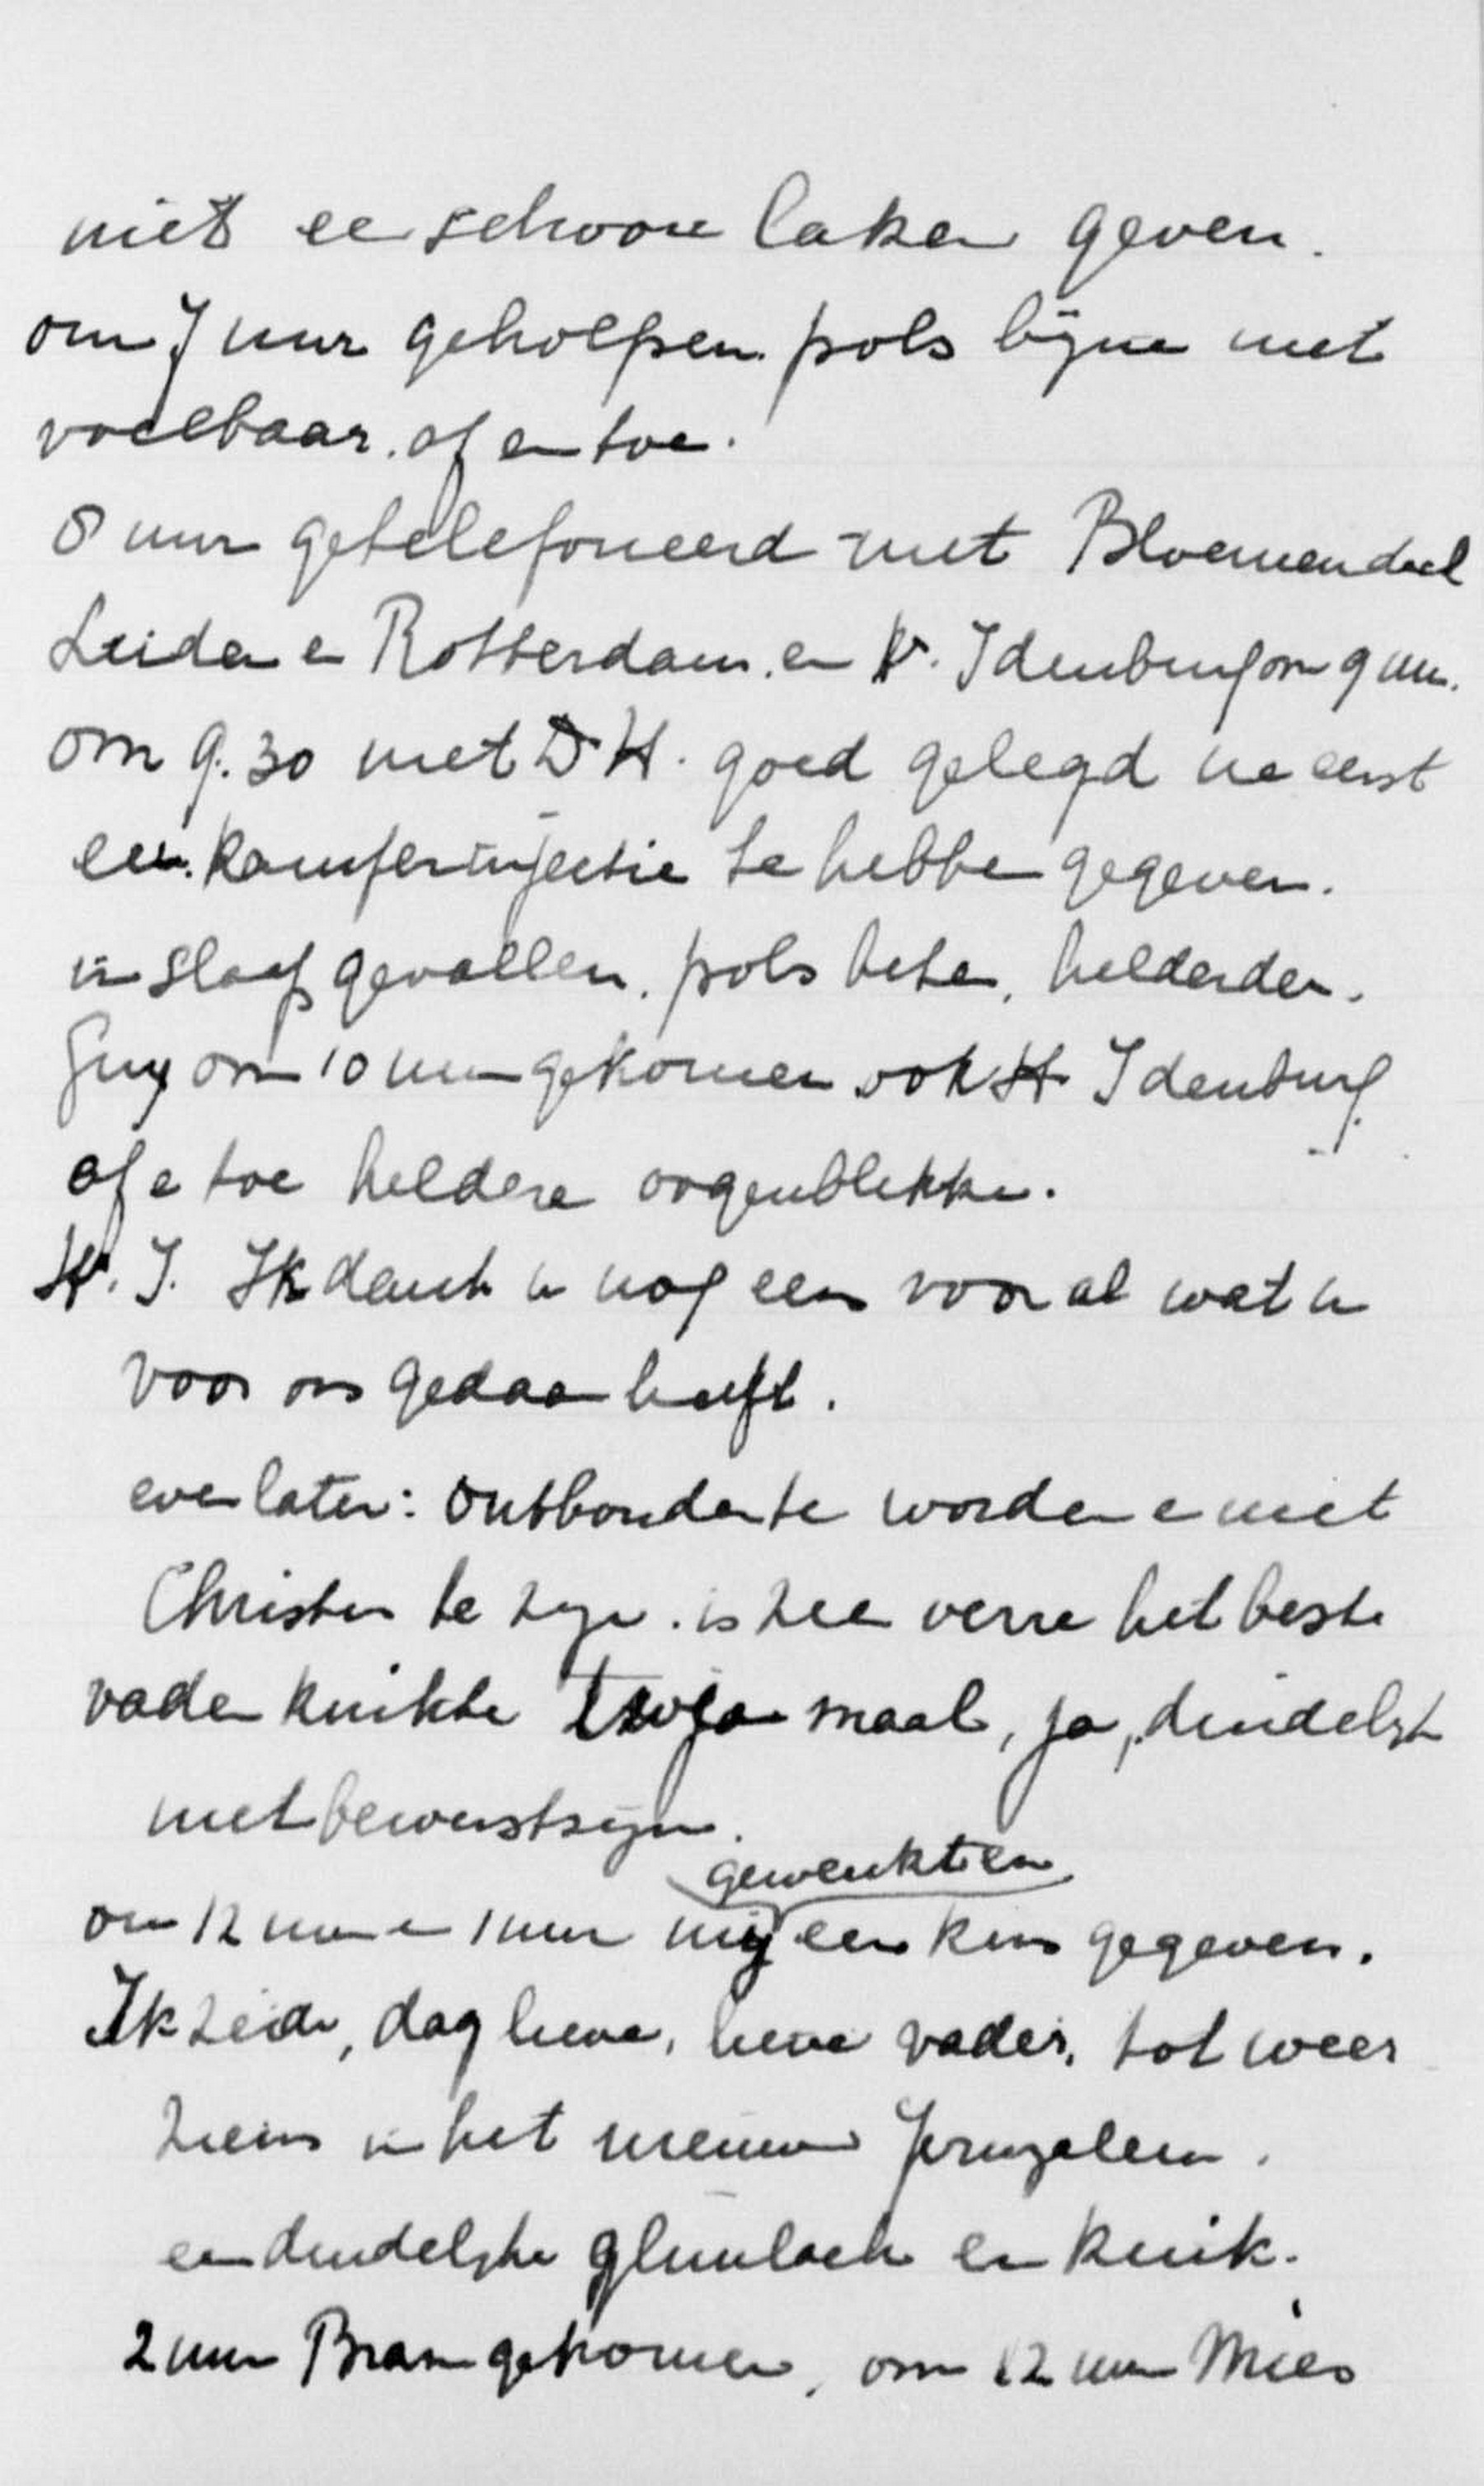 niet een schoon laken geven.
om 7 uur geholpen. pols bijna niet
voelbaar. af en toe.
8 uur getelefoneerd met Bloemendaal
Leiden en Rotterdam. en Idenburg om 9 uur.
om 9.30 met Dr H. goed gelegd na eerst
een kamferinjectie te hebben gegeven.
in slaap gevallen. pols beter, helderder.
Guy om 10 uur gekomen ook H. Idenburg
af en toe heldere oogenblikken.
H. I. Ik dank u nog eens voor al wat u
voor ons gedaan heeft.
even later: ontbonden te worden en met
Christus te zijn. is zeer verre het beste
vader knikte twee maal, ja, duidelijk
met bewustzijn.
gewenkt en
om 12 uur en 1 uur mij een kus gegeven.
Ik zeide, dag lieve, lieve vader, tot weer
ziens in het nieuwe Jeruzalem.
een duidelijke glimlach en knik.
2 uur Bram gekomen, om 12 uur Mies